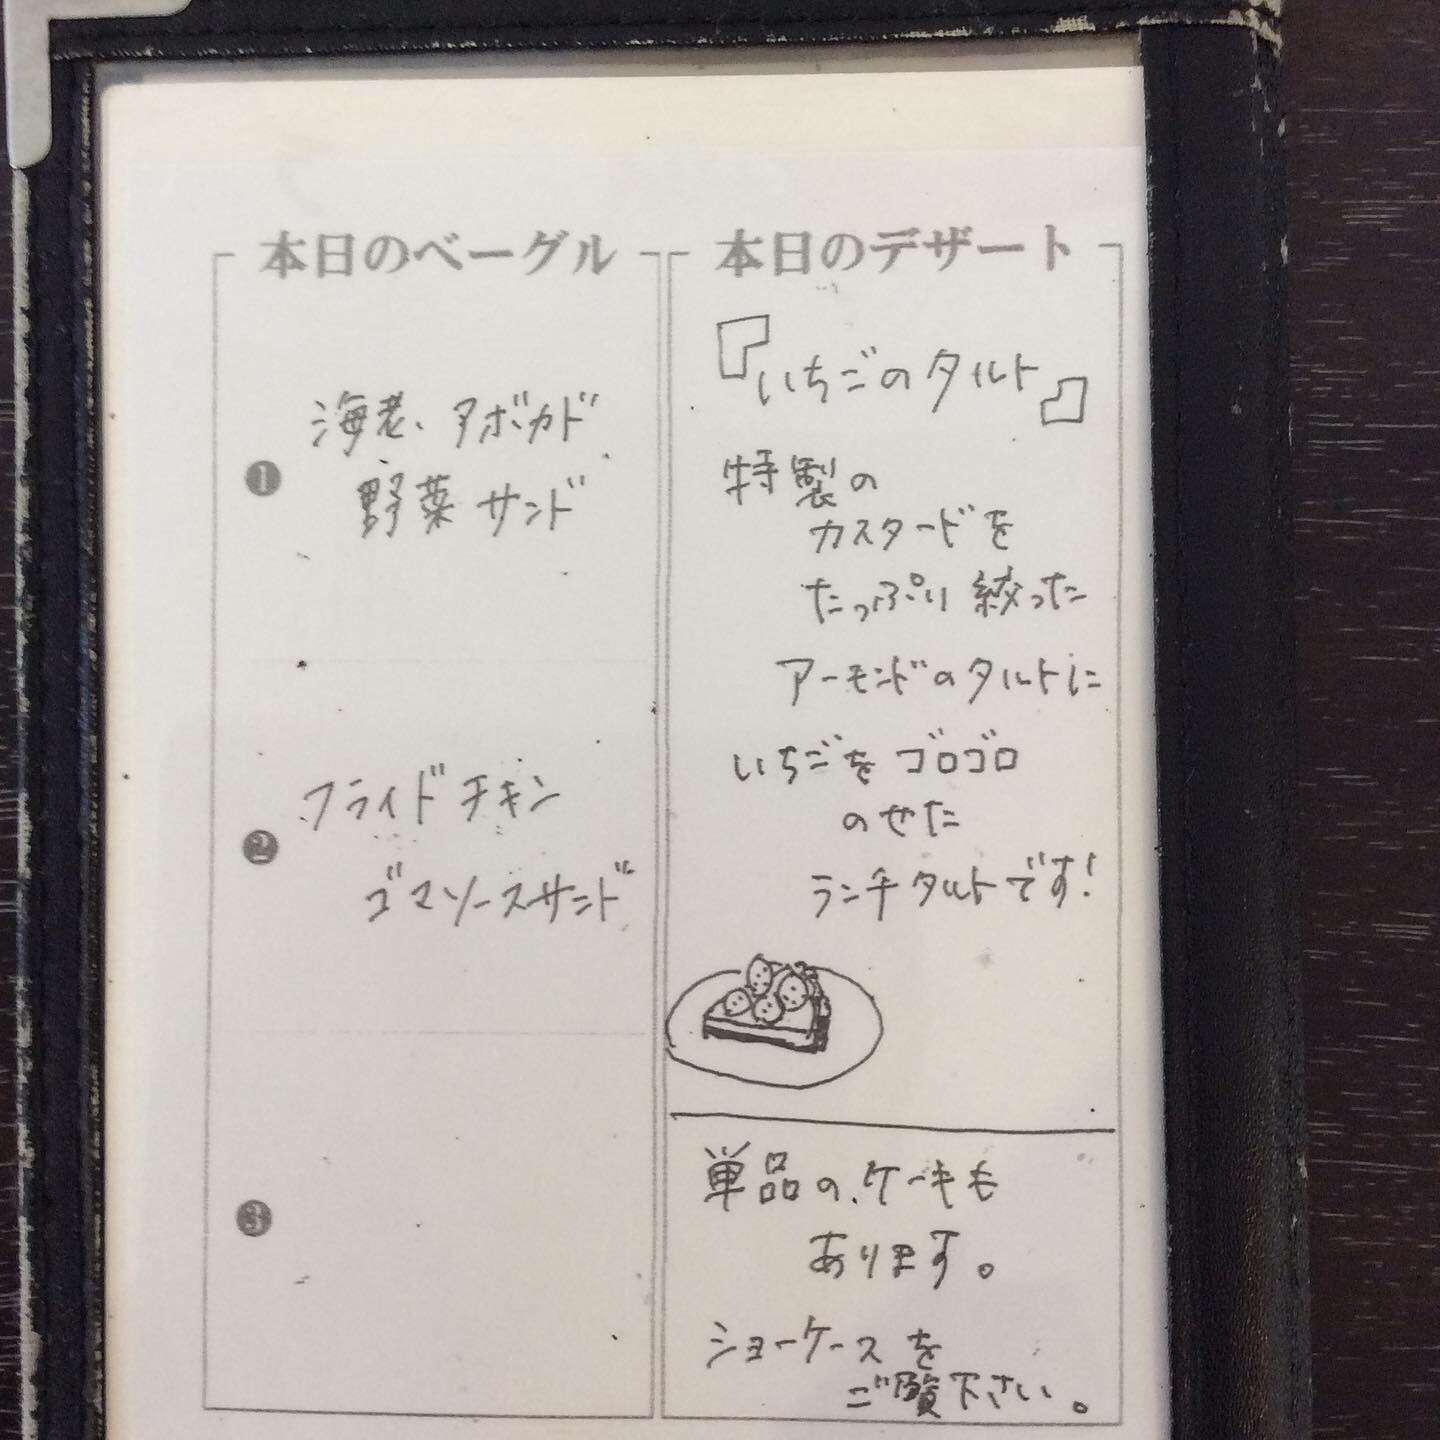 本日のベーグル
❶
海老、アボカド
野菜サンド
❷
フライドチキン
ゴマソースサンド
❸
本日のデザート
『いちごのタルト』
特製の
カスタードを
たっぷり絞った
アーモンドのタルトに
いちごをゴロゴロ
のせた
ランチタルトです!
単品の、ケーキも
あります。
ショーケースを
ご覧下さい。